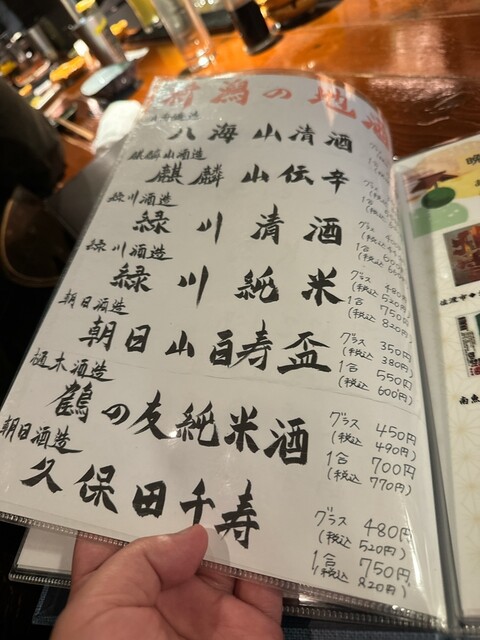 新潟の地酒
八海山清酒
麒麟山酒造
麒麟山伝辛
緑川酒造
緑川清酒
緑川酒造
緑川純米
グラス 480円
(税込 520円)
1合 750円
(税込 820円)
朝日酒造
朝日山百寿盃
グラス 350円
(税込 380円)
1合 550円
(税込 600円)
樋木酒造
鶴の友純米酒
グラス 450円
(税込 490円)
1合 700円
(税込 770円)
朝日酒造
久保田千寿
グラス 480円
(税込 520円)
1合 750円
(税込 820円)
佐渡市
南魚